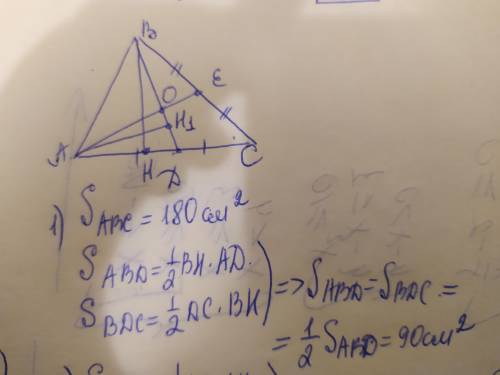 B
O
E
H1
A
H
D
C
1) S ABC = 180 см²
S ABD = 1/2 BH · AD.
S BDC = 1/2 DC · BH ) => S ABD = S BDC =
= 1/2 S ABD = 90 см²